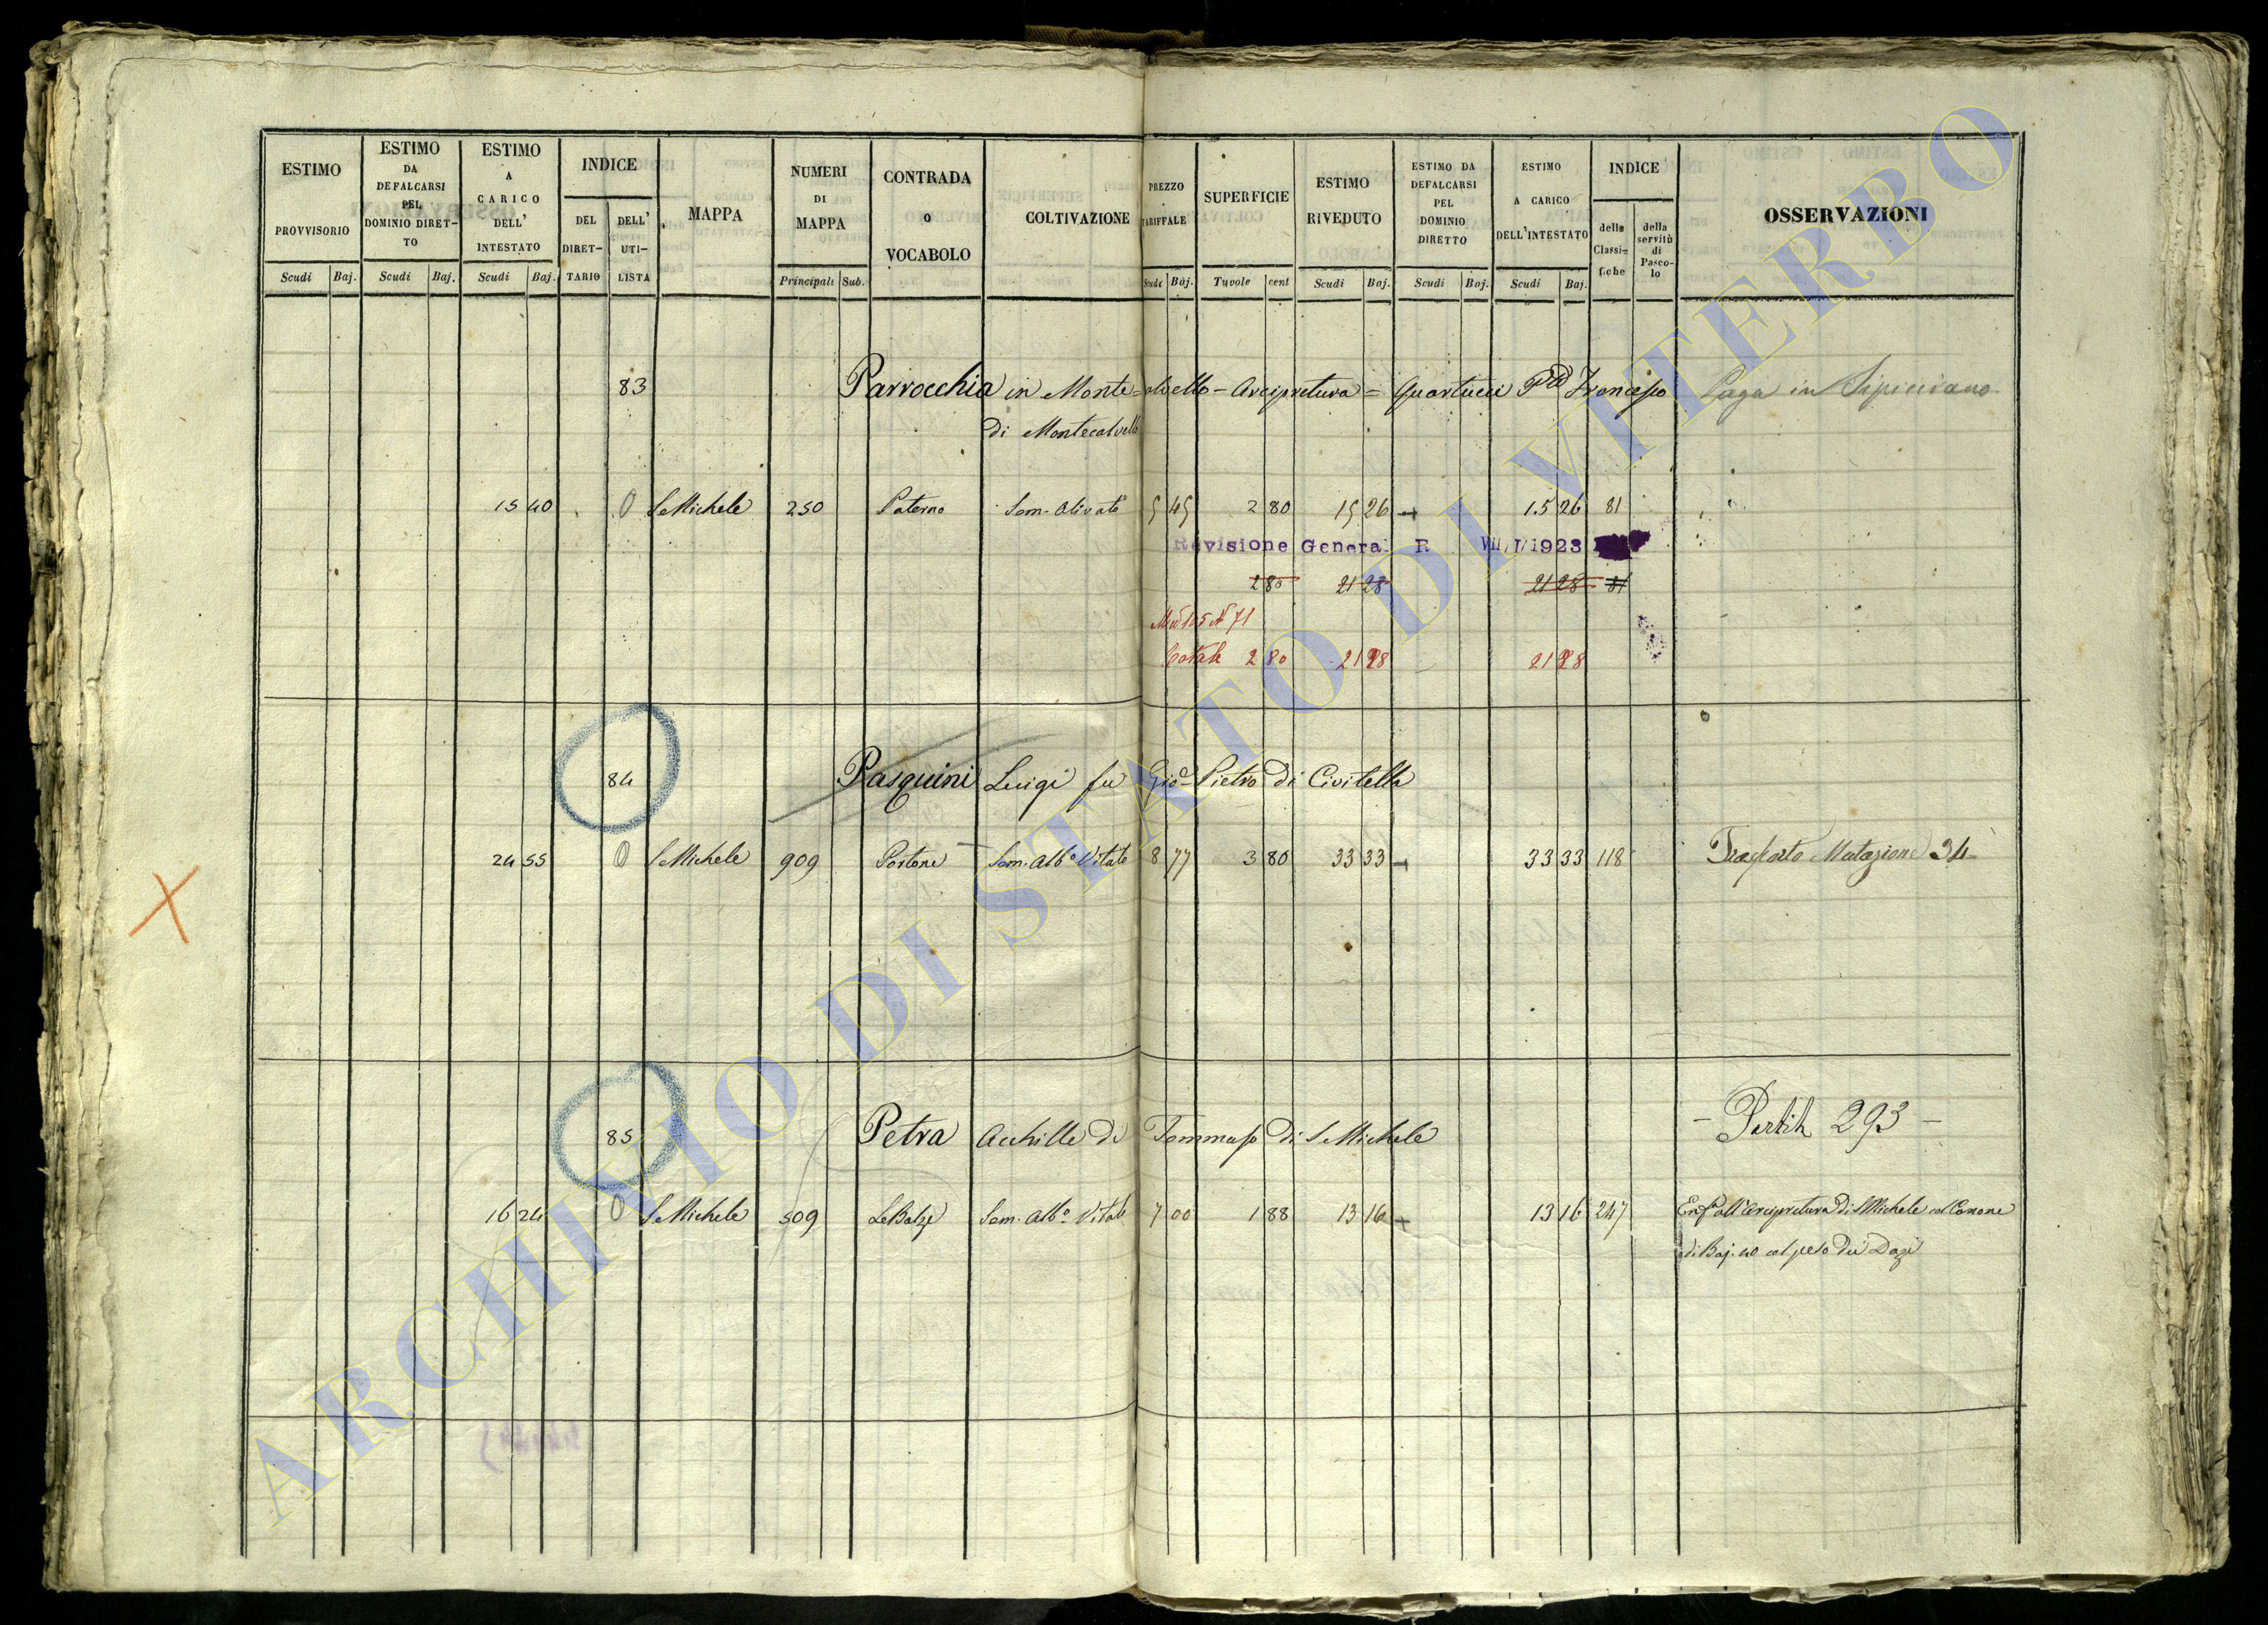 ESTIMO PROVVISORIO Scudi Baj.
ESTIMO DA DEFALCARSI PEL DOMINIO DIRETTO Scudi Baj.
ESTIMO A CARICO DELL' INTESTATO Scudi Baj.
INDICE DEL DIRETTARIO DELL' UTILISTA
MAPPA
NUMERI DI MAPPA Principali Sub.
CONTRADA O VOCABOLO
COLTIVAZIONE
PREZZO TARIFFALE Scudi Baj.
SUPERFICIE Tavole cent
ESTIMO RIVEDUTO Scudi Baj.
ESTIMO DA DEFALCARSI PEL DOMINIO DIRETTO Scudi Baj.
ESTIMO A CARICO DELL'INTESTATO Scudi Baj.
INDICE delle Classifiche della servitù di Pascolo
OSSERVAZIONI
83 Parrocchia in Monte=alvello - Arcipretura = Quartucci Francesco Paga in Sipicciano
di Montecalvello
15 40 0 S. Michele 250 Paterno Sem. Olivato 5 45 2 80 15 26 + 15 26 81
Revisione General R VII/I/1923
2 80 21 28 21 28 81
Mod 105 N 71
Totale 2 80 21 28 21 28
84 Pasquini Luigi fu Gio. Pietro di Civitella
24 55 0 S. Michele 909 Portone Sem. Alb.o Vitato 8 77 3 80 33 33 + 33 33 118 Trasporto Mutazione 34
85 Petra Achille di Tommaso di S. Michele - Partita 293 -
16 24 0 S. Michele 509 Le Balze Sem. Alb.o Vitato 7 00 1 88 13 16 + 13 16 247 Enf. all'Arcipretura di S. Michele col Canone
di Baj. 40 col peso dei Dazi
ARCHIVIO DI STATO DI VITERBO